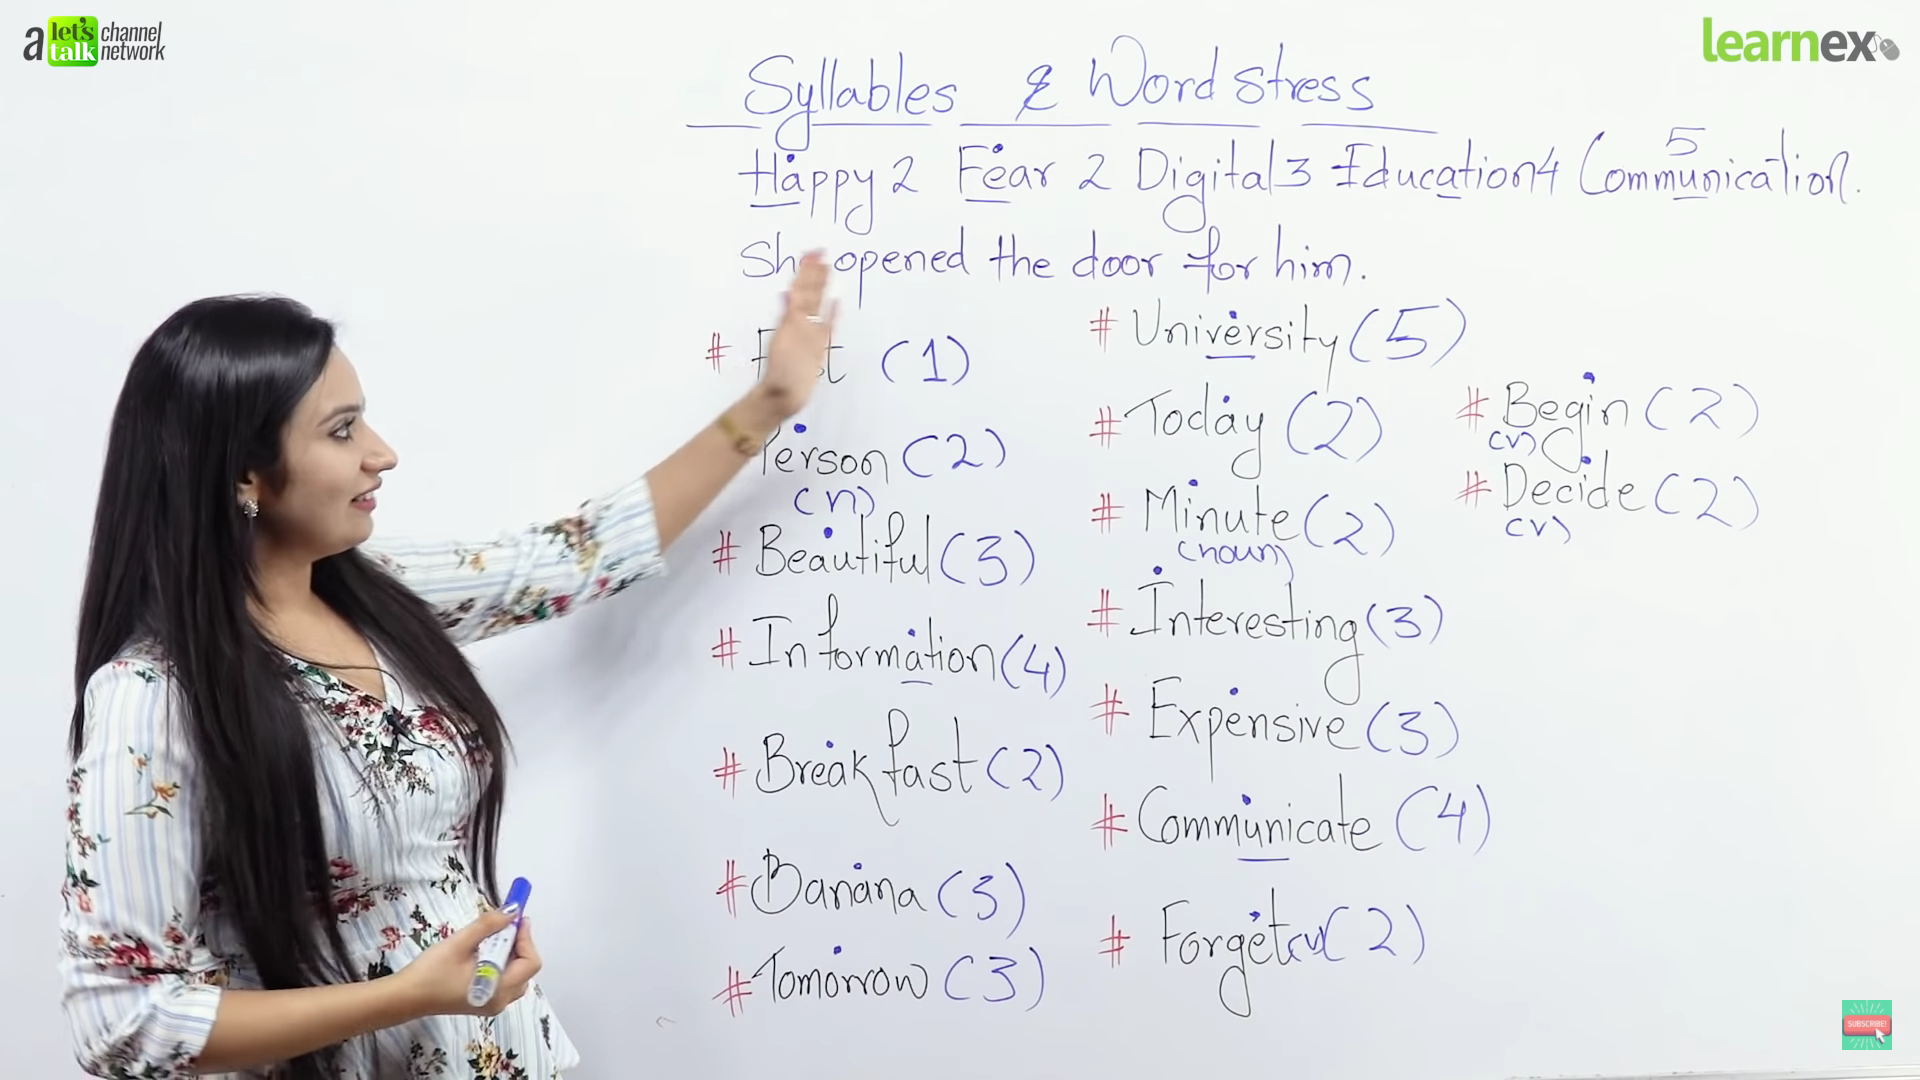 a let's talk channel network
learnex
Syllables & Word Stress
Happy 2 Fear 2 Digital 3 Education 4 Communication. 5
She opened the door for him.
# (1)
Person (2)
(n)
# Beautiful (3)
# Information (4)
# Breakfast (2)
# Banana (3)
# Tomorrow (3)
# University (5)
# Today (2)
# Minute (2)
(noun)
# Interesting (3)
# Expensive (3)
# Communicate (4)
# Forget (v) (2)
# Begin (2)
(v)
# Decide (2)
(v)
SUBSCRIBE!